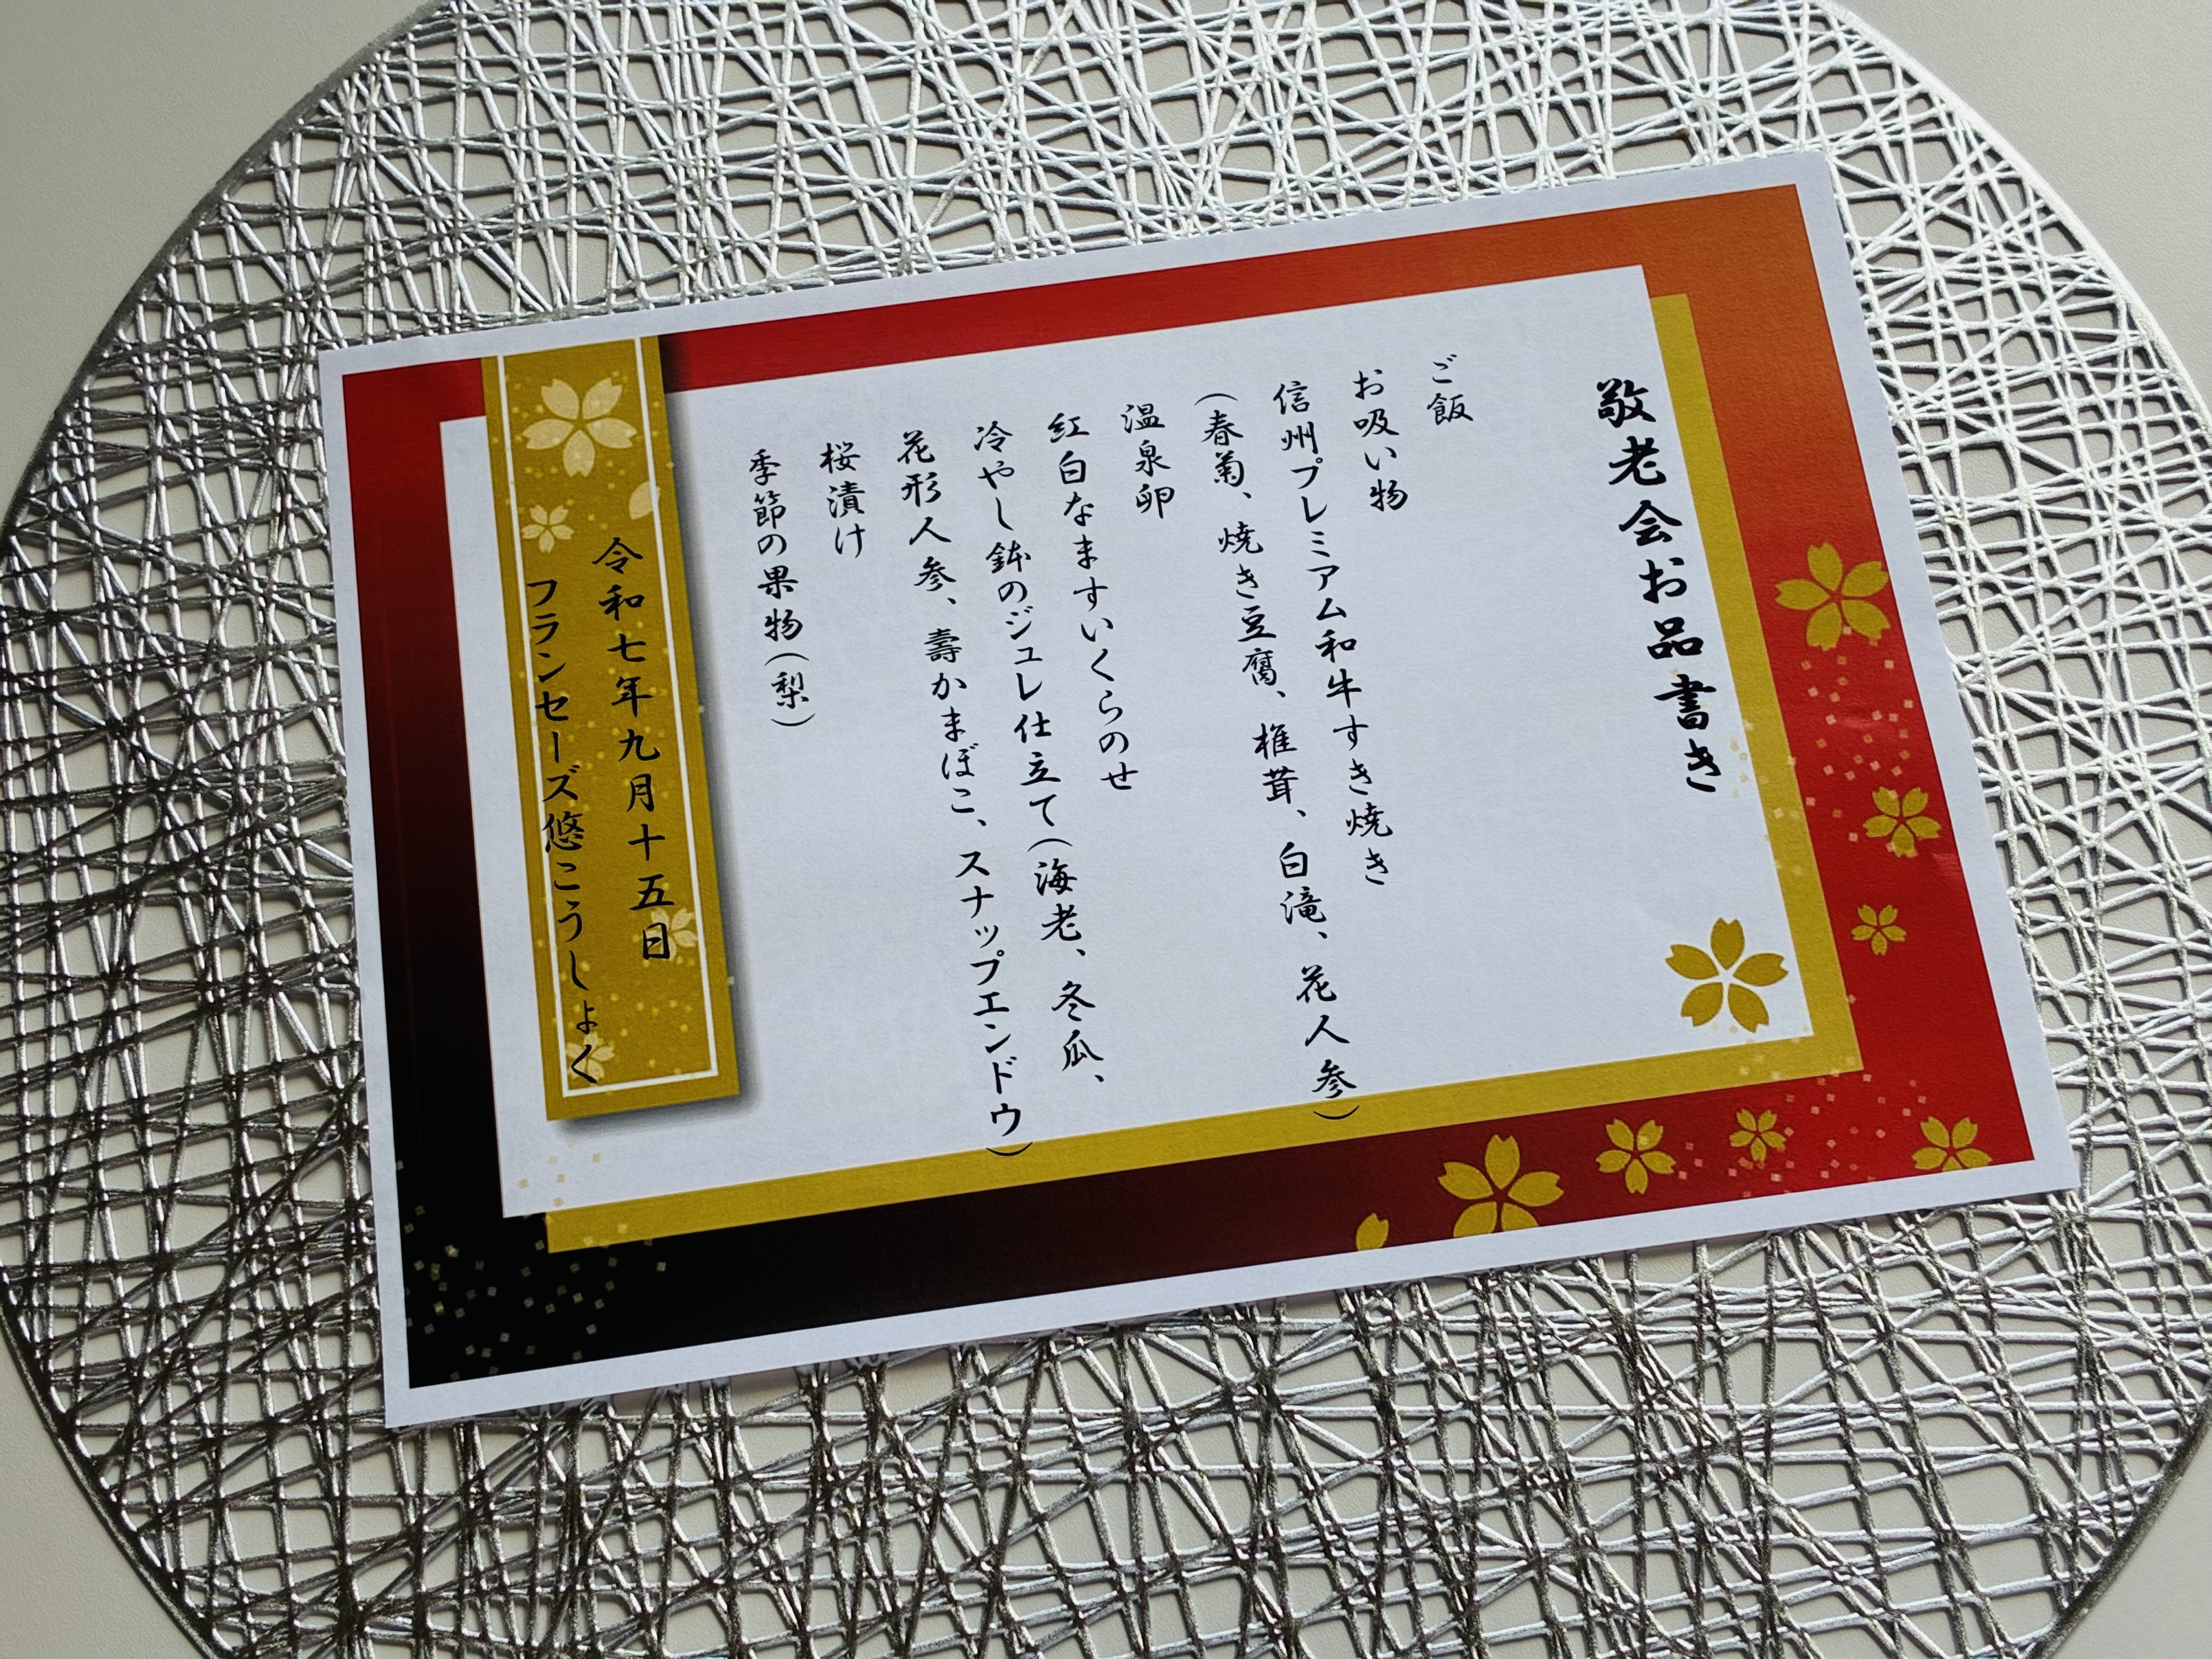 敬老会お品書き
ご飯
お吸い物
信州プレミアム和牛すき焼き
(春菊、焼き豆腐、椎茸、白滝、花人参)
温泉卵
紅白なますいくらのせ
冷やし鉢のジュレ仕立て(海老、冬瓜、
花形人参、壽かまぼこ、スナップエンドウ)
桜漬け
季節の果物(梨)
令和七年九月十五日
フランセーズ悠こうしょく